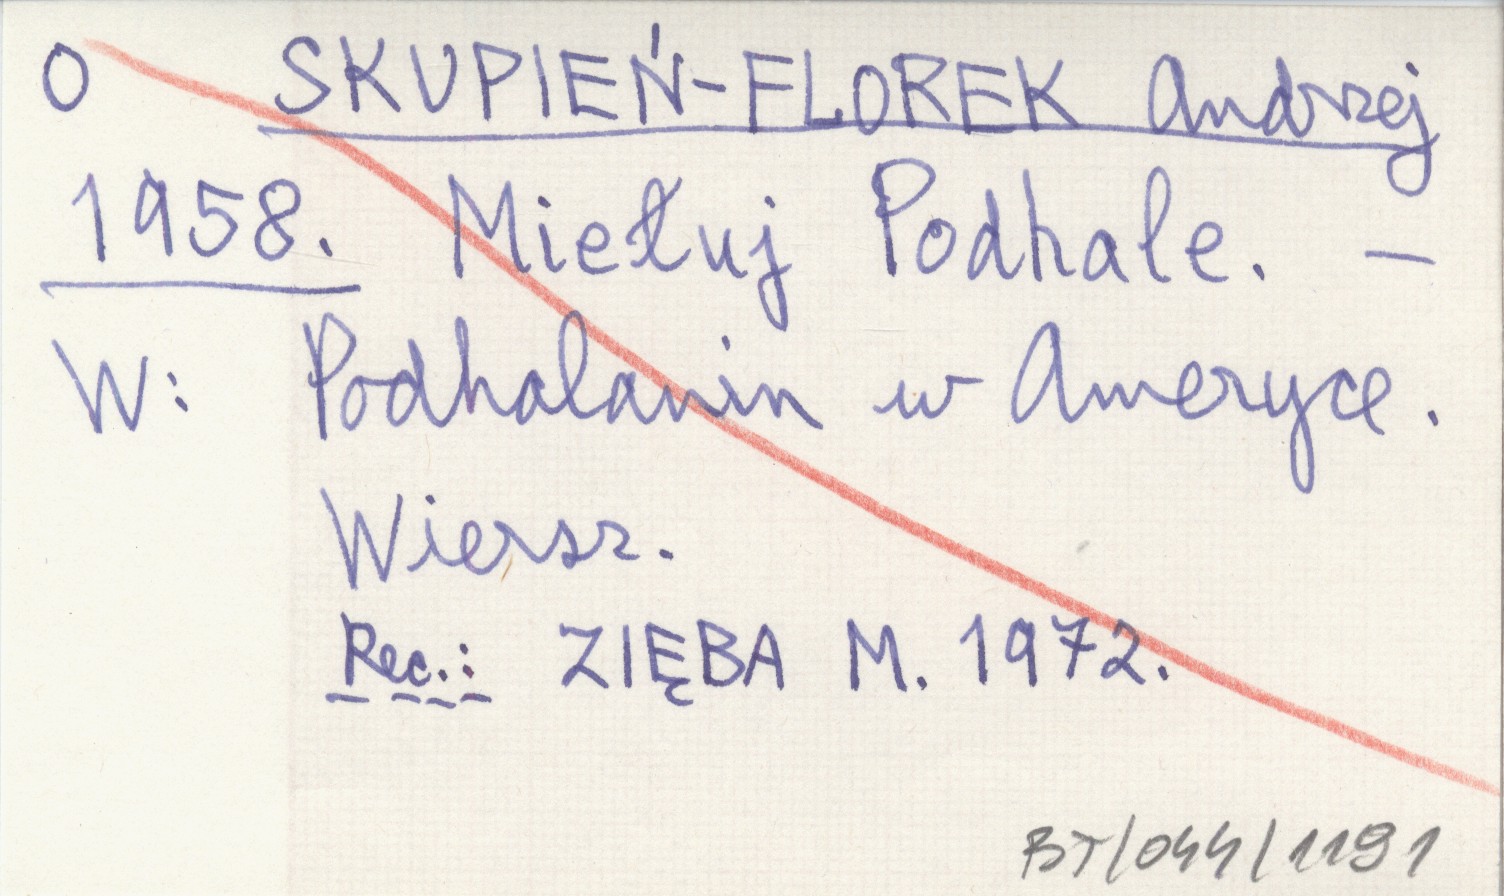 O SKUPIEŃ-FLOREK Andrzej
1958. Miełuj Podhale. –
W: Podhalanin w Ameryce.
Wiersz.
Rec.: ZIĘBA M. 1972.
BT/044/1191